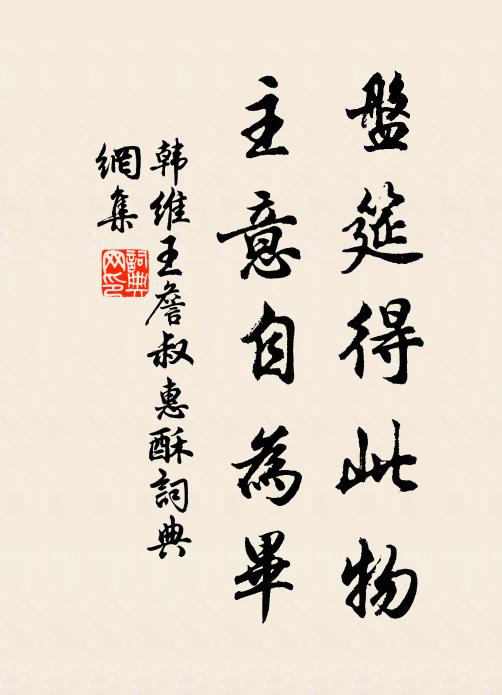 盤筵得此物
主意自為畢
韩维王詹叔惠酥詞典
網集
詞典
网印